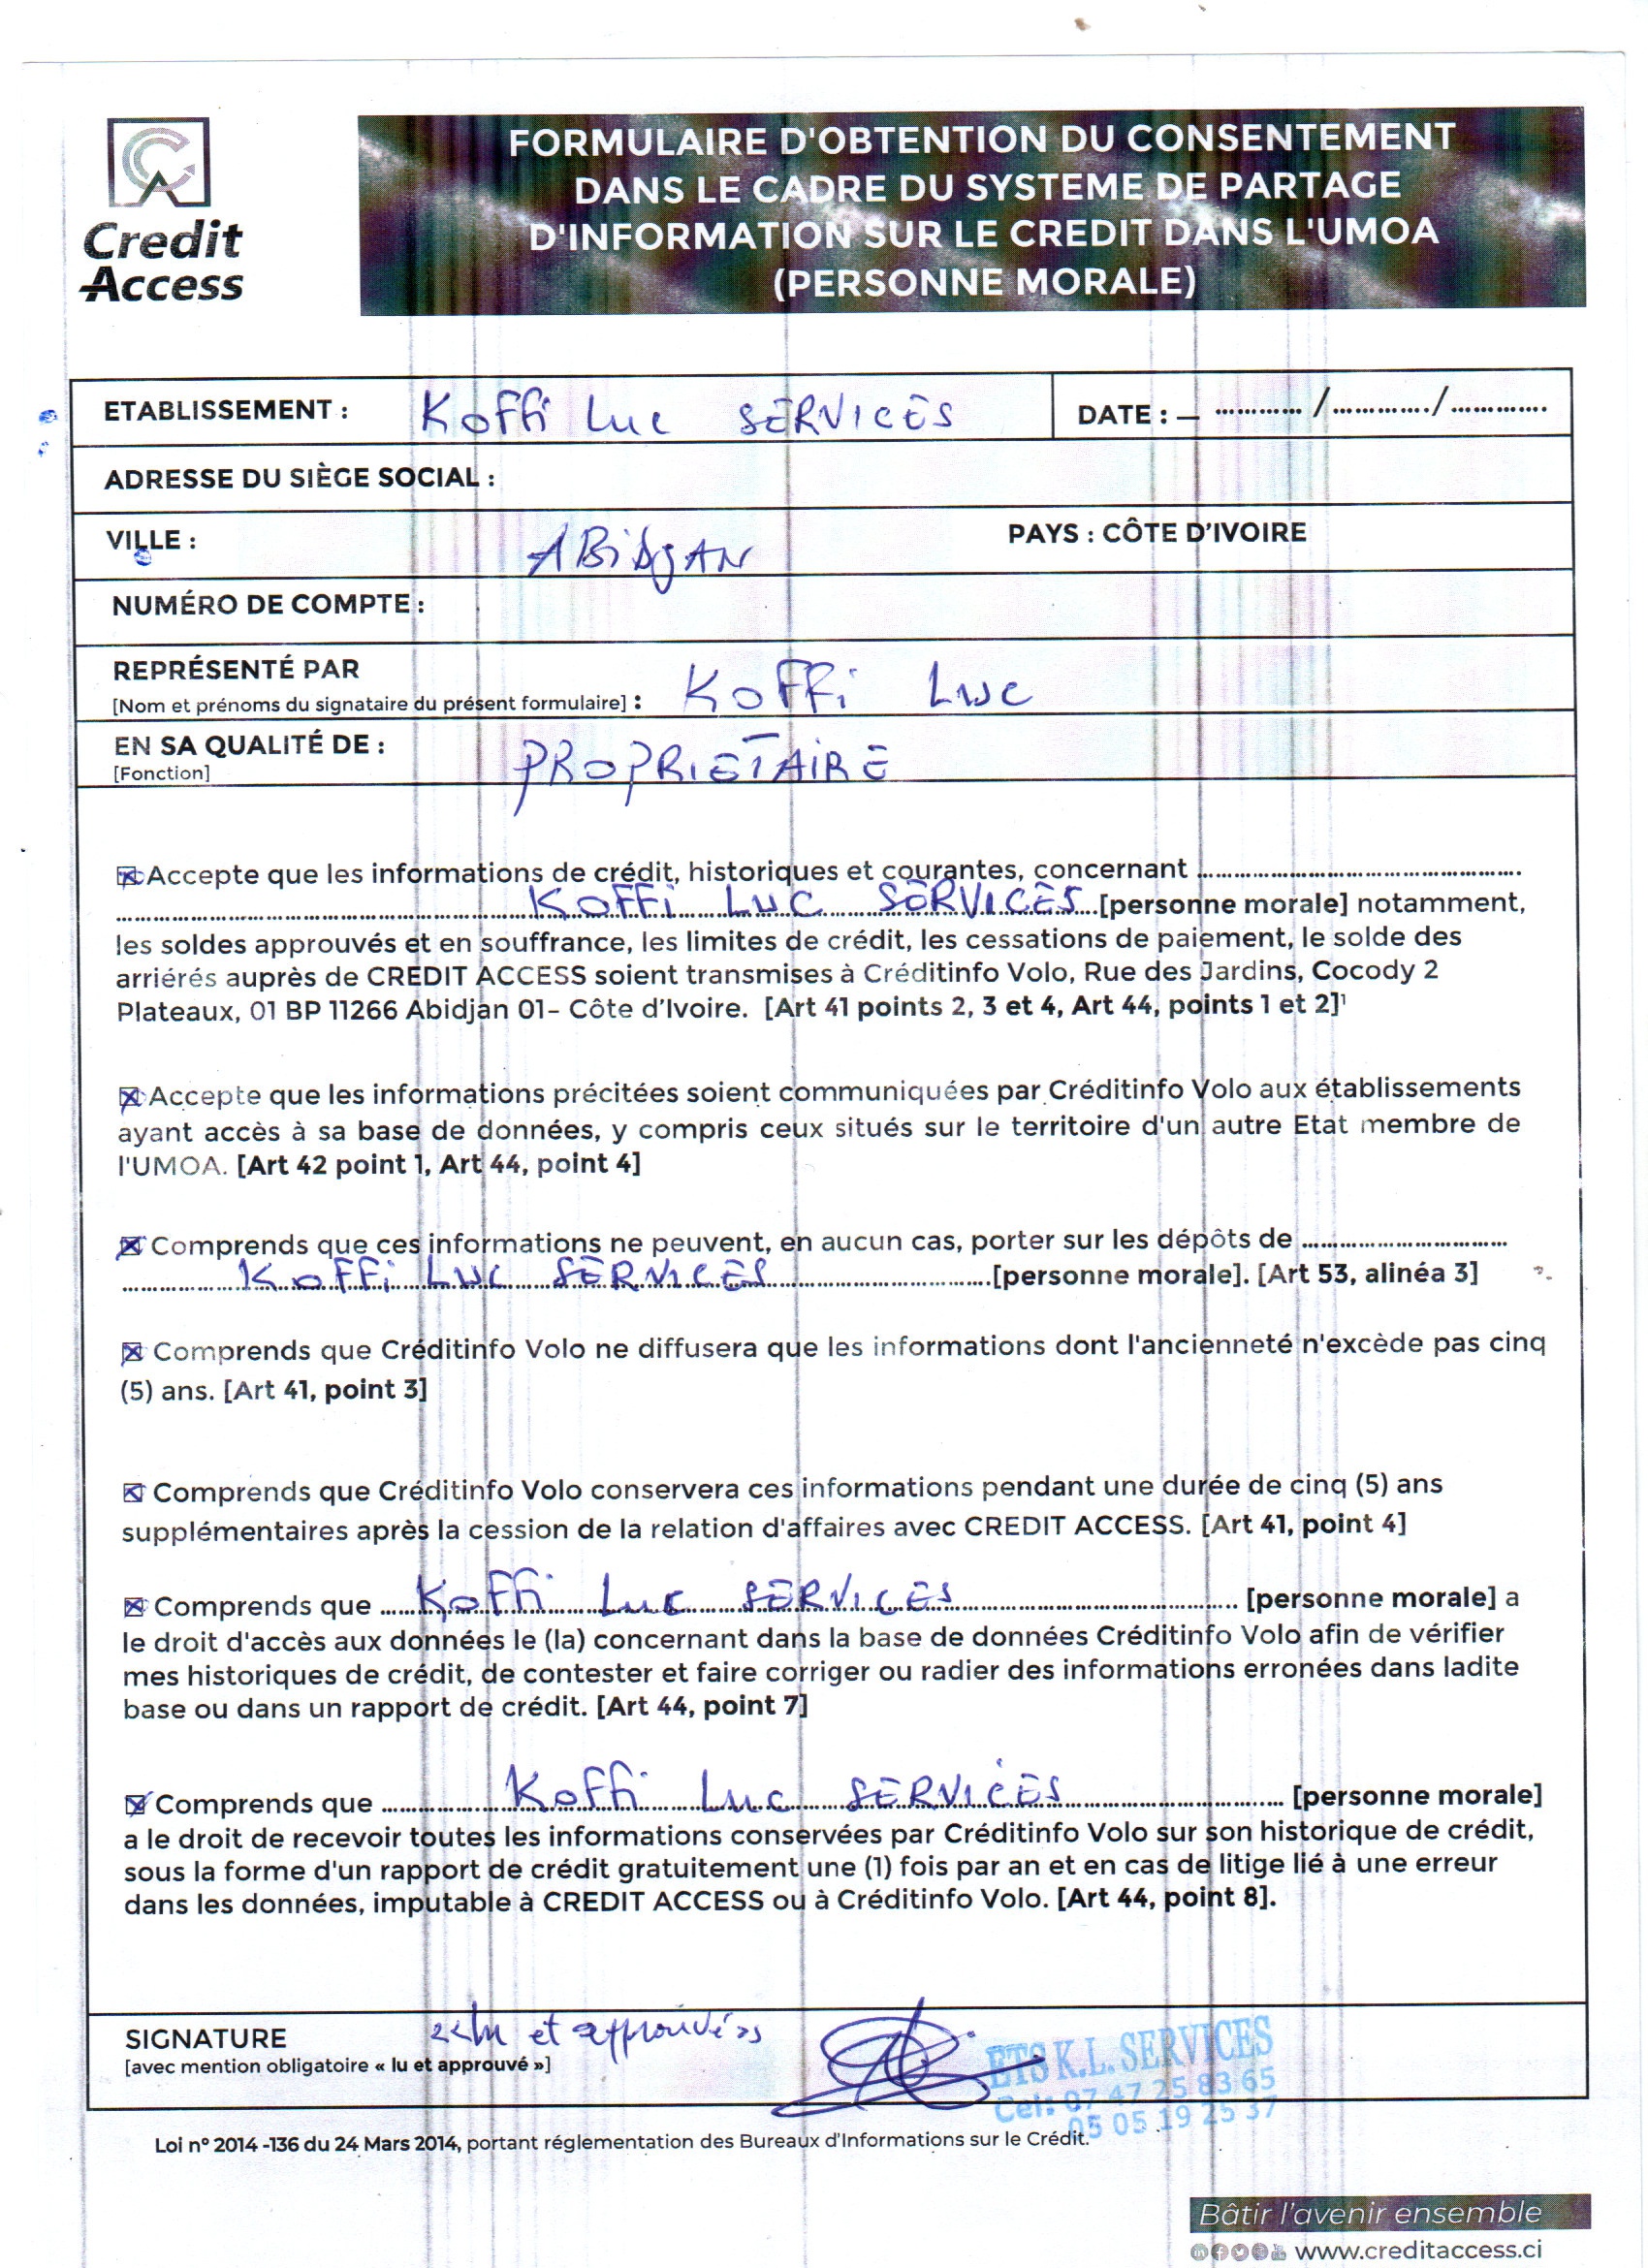 Credit
Access
FORMULAIRE D'OBTENTION DU CONSENTEMENT
DANS LE CADRE DU SYSTEME DE PARTAGE
D'INFORMATION SUR LE CREDIT DANS L'UMOA
(PERSONNE MORALE)
ETABLISSEMENT : Koffi Luc SERVICES DATE : – ............ /............./.............
ADRESSE DU SIÈGE SOCIAL :
VILLE : ABIDJAN PAYS : CÔTE D'IVOIRE
NUMÉRO DE COMPTE :
REPRÉSENTÉ PAR
[Nom et prénoms du signataire du présent formulaire] : KOFFI LUC
EN SA QUALITÉ DE : PROPRIETAIRE
[Fonction]
☒ Accepte que les informations de crédit, historiques et courantes, concernant ..............................
KOFFI LUC SERVICES [personne morale] notamment,
les soldes approuvés et en souffrance, les limites de crédit, les cessations de paiement, le solde des
arriérés auprès de CREDIT ACCESS soient transmises à Créditinfo Volo, Rue des Jardins, Cocody 2
Plateaux, 01 BP 11266 Abidjan 01– Côte d'Ivoire. [Art 41 points 2, 3 et 4, Art 44, points 1 et 2]¹
☒ Accepte que les informations précitées soient communiquées par Créditinfo Volo aux établissements
ayant accès à sa base de données, y compris ceux situés sur le territoire d'un autre Etat membre de
l'UMOA. [Art 42 point 1, Art 44, point 4]
☒ Comprends que ces informations ne peuvent, en aucun cas, porter sur les dépôts de ..............................
KOFFI LUC SERVICES [personne morale]. [Art 53, alinéa 3]
☒ Comprends que Créditinfo Volo ne diffusera que les informations dont l'ancienneté n'excède pas cinq
(5) ans. [Art 41, point 3]
☒ Comprends que Créditinfo Volo conservera ces informations pendant une durée de cinq (5) ans
supplémentaires après la cession de la relation d'affaires avec CREDIT ACCESS. [Art 41, point 4]
☒ Comprends que Koffi Luc SERVICES [personne morale] a
le droit d'accès aux données le (la) concernant dans la base de données Créditinfo Volo afin de vérifier
mes historiques de crédit, de contester et faire corriger ou radier des informations erronées dans ladite
base ou dans un rapport de crédit. [Art 44, point 7]
☒ Comprends que Koffi Luc SERVICES [personne morale]
a le droit de recevoir toutes les informations conservées par Créditinfo Volo sur son historique de crédit,
sous la forme d'un rapport de crédit gratuitement une (1) fois par an et en cas de litige lié à une erreur
dans les données, imputable à CREDIT ACCESS ou à Créditinfo Volo. [Art 44, point 8].
SIGNATURE «lu et approuvé»
[avec mention obligatoire « lu et approuvé »]
ETS K.L. SERVICES
Cel: 07 47 25 83 65
05 05 19 25 37
Loi n° 2014 -136 du 24 Mars 2014, portant réglementation des Bureaux d'Informations sur le Crédit.
Bâtir l'avenir ensemble
www.creditaccess.ci